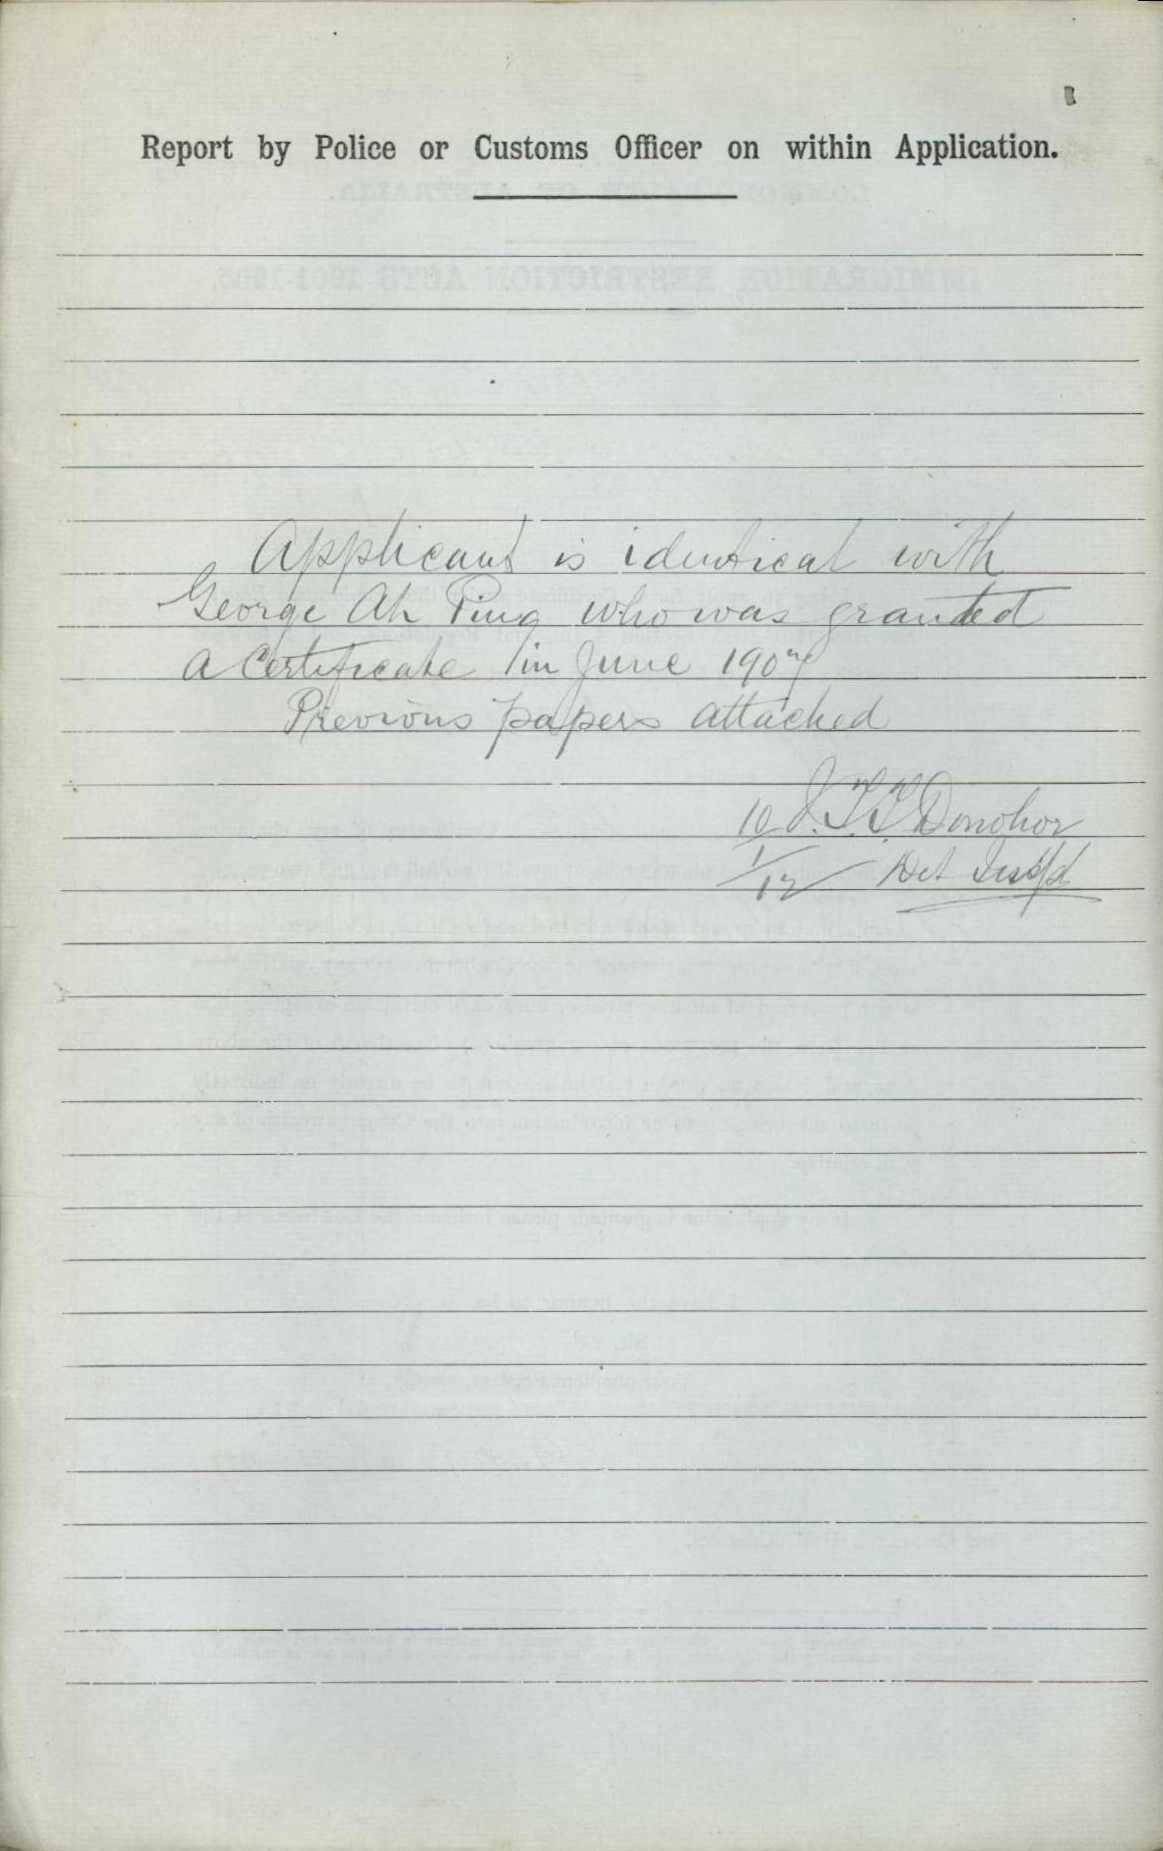 Report by Police or Customs Officer on within Application.
Applicant is identical with
George Ah Ping who was granted
a Certificate in June 1907
Previous papers attached
10 J. T. T. Donohoe
1/12 Det Inspr